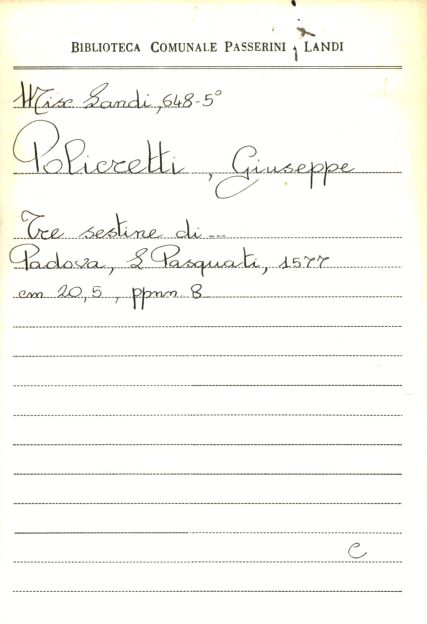 BIBLIOTECA COMUNALE PASSERINI LANDI
Misc Landi, 648-5°
Policretti, Giuseppe
Tre sestine di ...
Padova, L Pasquati, 1577
cm 20,5, ppnn 8
C